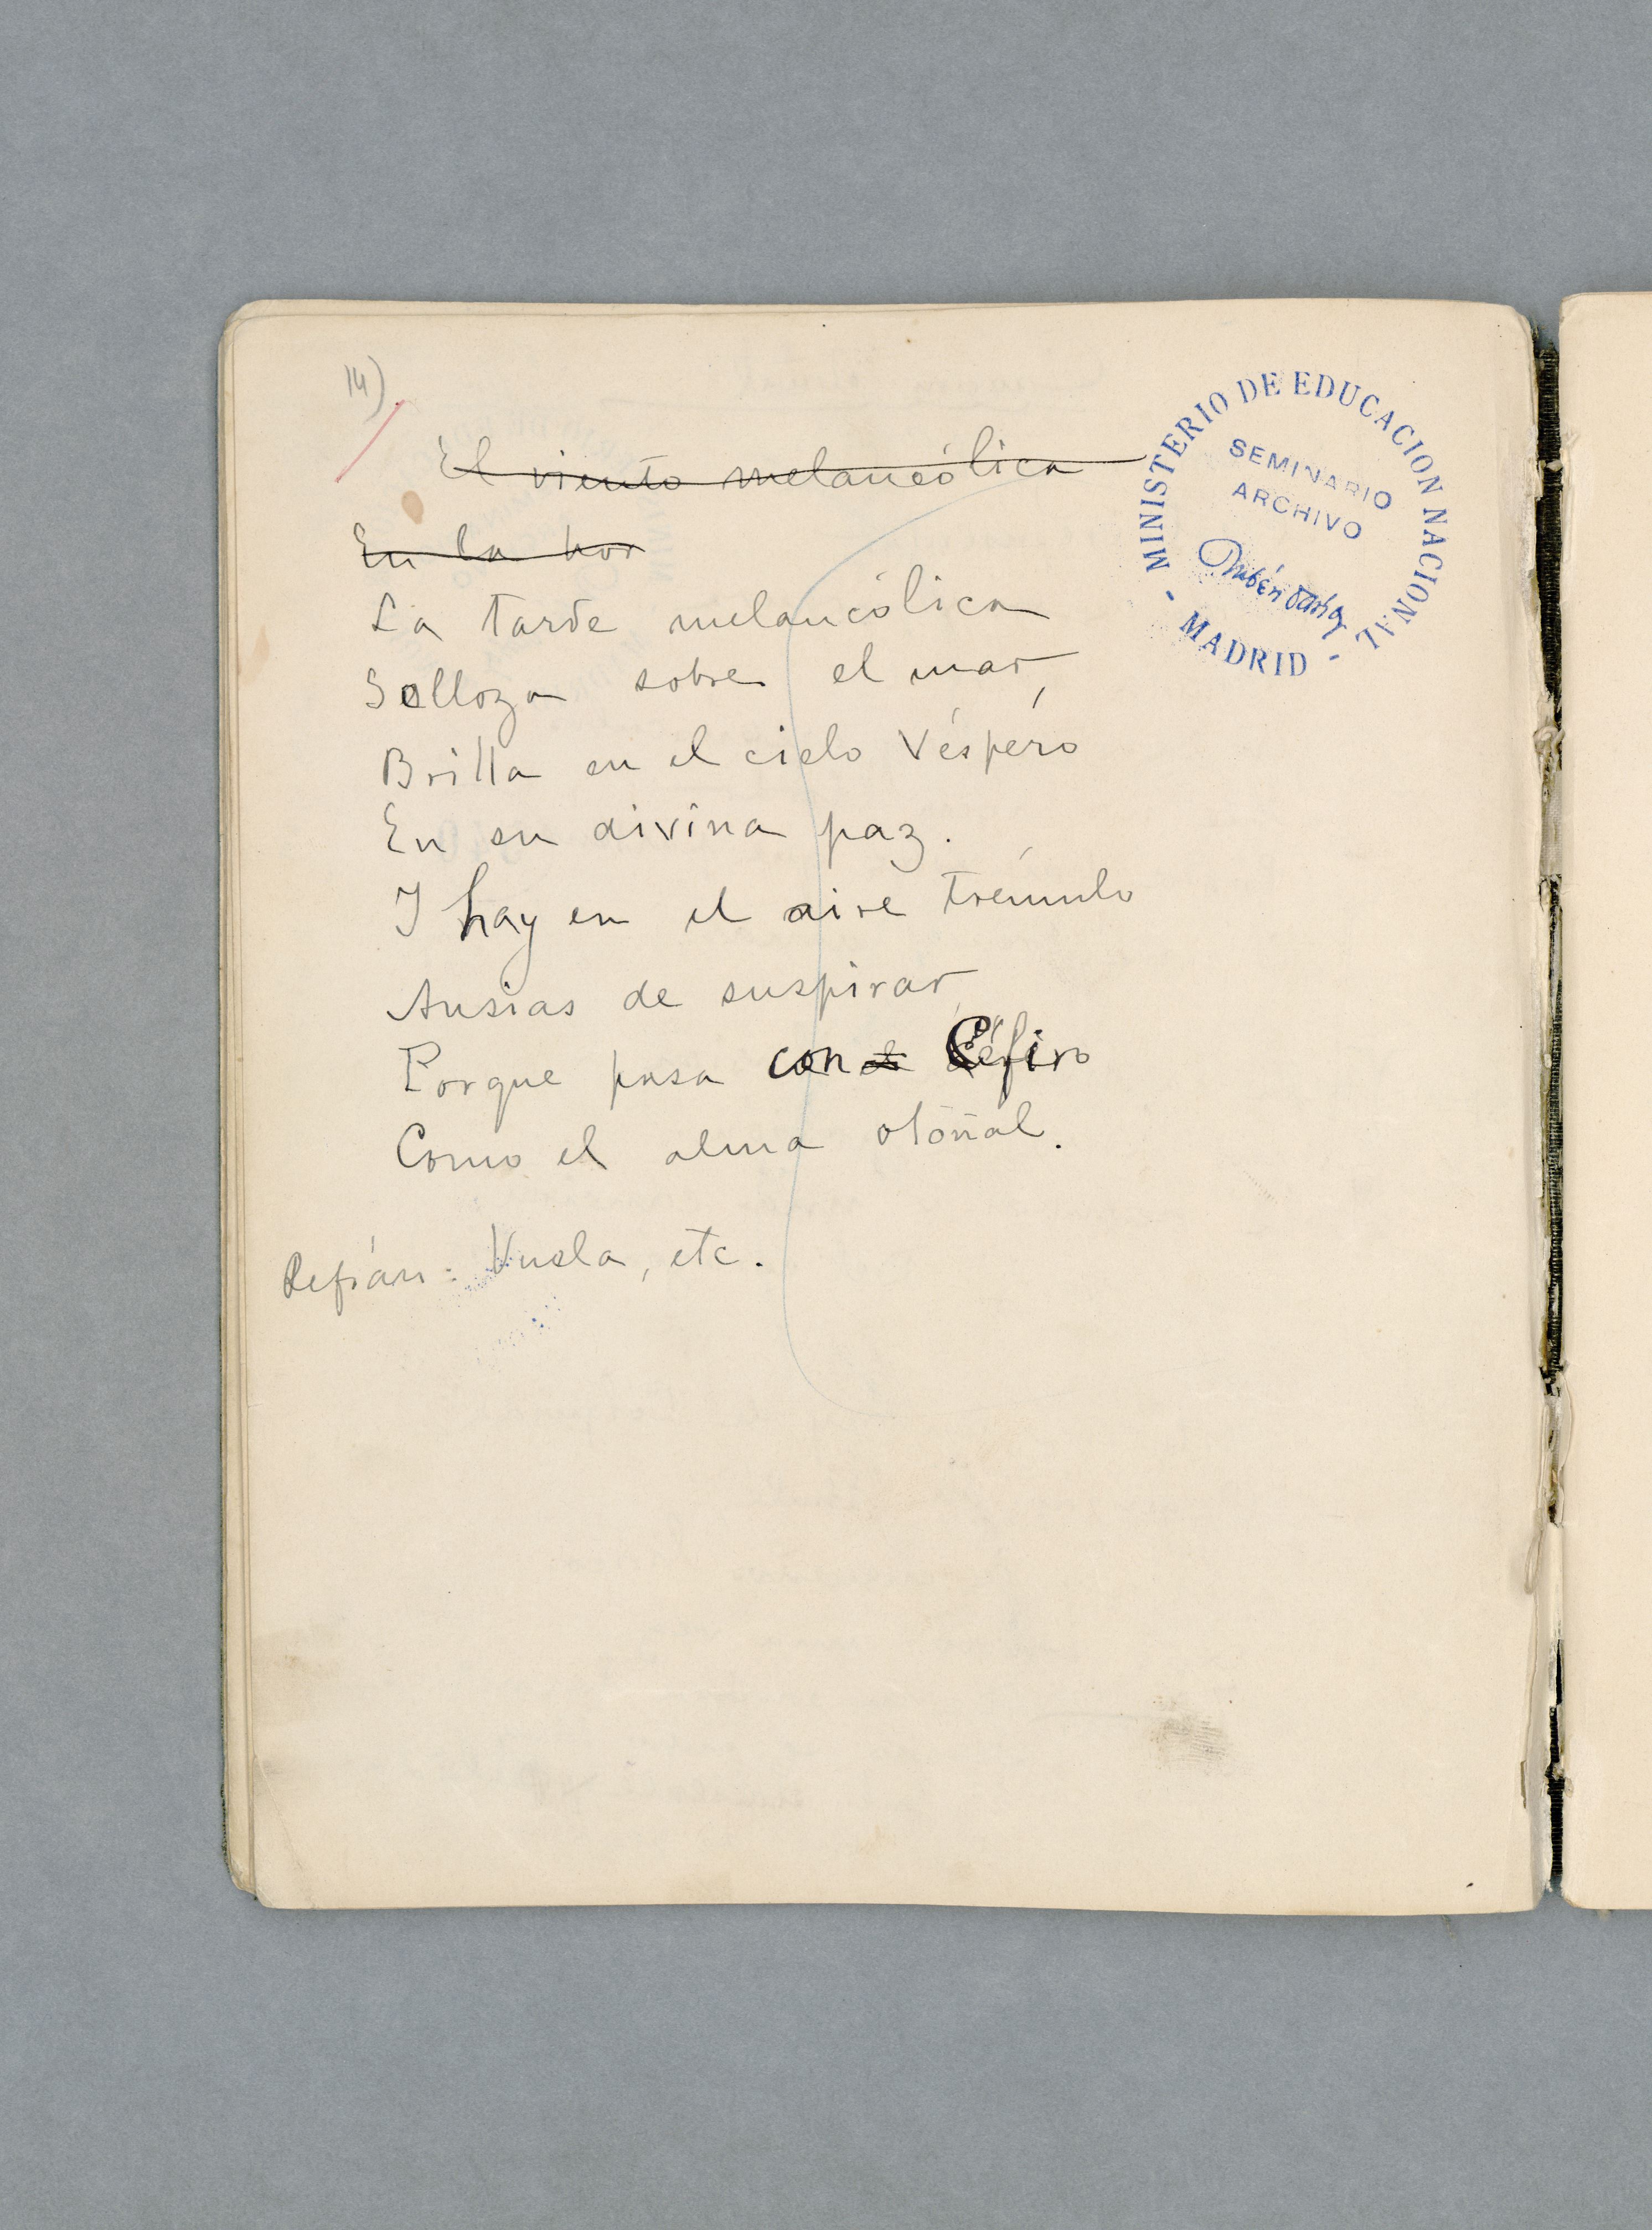 14)
El viento melancólica
En la hor
La tarde melancólica
Solloza sobre el mar,
Brilla en el cielo Véspero
En su divina paz.
I hay en el aire trémulo
Ansias de suspirar,
Porque pasa con el Céfiro
Como el alma otoñal.
Refrán: Vuela, etc.
MINISTERIO DE EDUCACION NACIONAL
SEMINARIO
ARCHIVO
Rubén Darío
- MADRID -